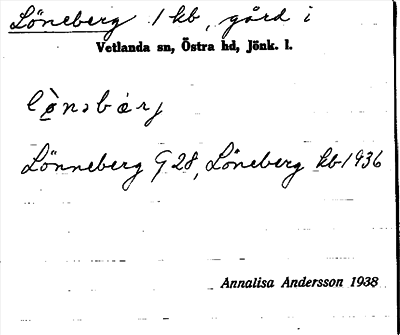 Löneberg 1 kb, gård i
Vetlanda sn, Östra hd, Jönk. l.
Lönneberg G 28, Löneberg kb 1936
Annalisa Andersson 1938